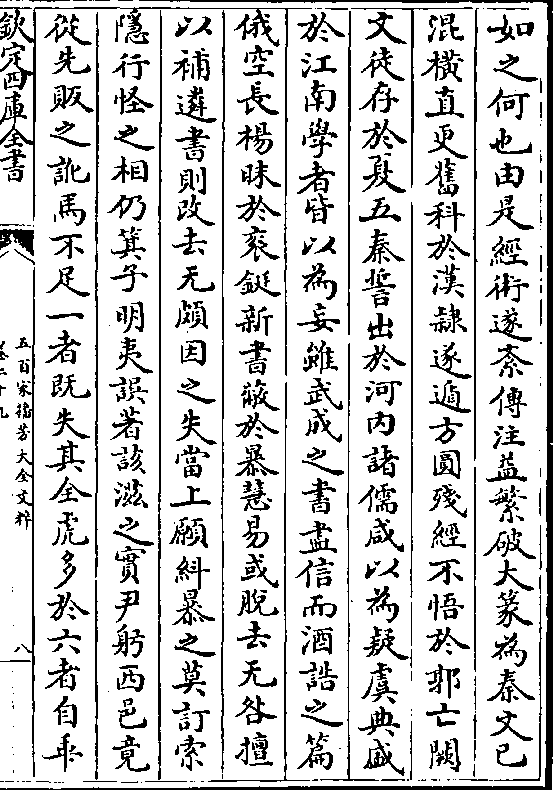 如之何也由是經術遂紊傳注益繁破大篆為秦文已
混橫直更舊科於漢隸遂遁方圓殘經不悟於郭亡闕
文徒存於夏五秦誓出於河内諸儒咸以為疑虞典盛
於江南學者皆以為妄雖武成之書盡信而酒誥之篇
俄空長楊昧於衮鋋新書蔽於暴慧易或脫去无咎擅
以補遴書則改去无頗因之失當上願糾暴之莫訂索
隱行怪之相仍箕子明夷誤著該滋之實尹躬西邑竟
從先販之訛馬不足一者既失其全虎多於六者自乖
欽定四庫全書
五百家播芳大全文粹
八